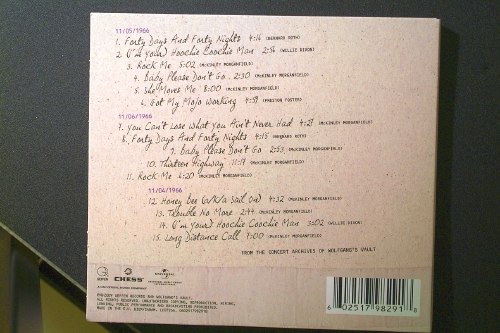 11/05/1966
1. Forty Days And Forty Nights 4:16 (BERNARD ROTH)
2. (I'm Your) Hoochie Coochie Man 2:56 (WILLIE DIXON)
3. Rock Me 5:02 (McKINLEY MORGANFIELD)
4. Baby Please Don't Go 2:30 (McKINLEY MORGANFIELD)
5. She Moves Me 8:00 (McKINLEY MORGANFIELD)
6. Got My Mojo Working 4:59 (PRESTON FOSTER)
11/06/1966
7. You Can't Lose What You Ain't Never Had 4:27 (McKINLEY MORGANFIELD)
8. Forty Days And Forty Nights 4:15 (BERNARD ROTH)
9. Baby Please Don't Go 2:53 (McKINLEY MORGANFIELD)
10. Thirteen Highway 11:19 (McKINLEY MORGANFIELD)
11. Rock Me 6:20 (McKINLEY MORGANFIELD)
11/04/1966
12. Honey Bee (a/k/a Sail On) 4:32 (McKINLEY MORGANFIELD)
13. Trouble No More 2:44 (McKINLEY MORGANFIELD)
14. (I'm Your) Hoochie Coochie Man 3:02 (WILLIE DIXON)
15. Long Distance Call 7:00 (McKINLEY MORGANFIELD)
FROM THE CONCERT ARCHIVES OF WOLFGANG'S VAULT
GEFFEN CHESS UNIVERSAL
A UNIVERSAL MUSIC COMPANY
GEFFEN RECORDS AND WOLFGANG'S VAULT.
ALL RIGHTS RESERVED. UNAUTHORIZED COPYING, REPRODUCTION, HIRING,
LENDING, PUBLIC PERFORMANCE AND BROADCASTING PROHIBITED.
MADE IN THE
6 02517 98291 8